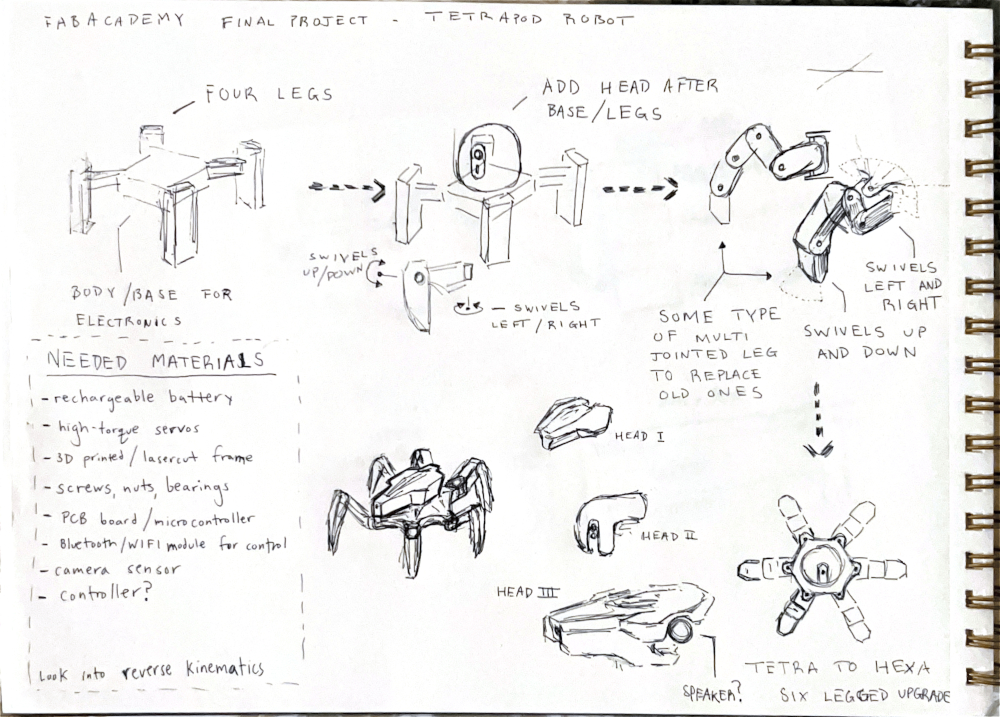 FABACADEMY FINAL PROJECT - TETRAPOD ROBOT
FOUR LEGS
BODY/BASE FOR
ELECTRONICS
ADD HEAD AFTER
BASE/LEGS
SWIVELS
UP/DOWN
- SWIVELS
LEFT/RIGHT
SOME TYPE
OF MULTI
JOINTED LEG
TO REPLACE
OLD ONES
SWIVELS
LEFT AND
RIGHT
SWIVELS UP
AND DOWN
NEEDED MATERIALS
- rechargeable battery
- high-torque servos
- 3D printed/lasercut frame
- screws, nuts, bearings
- PCB board/microcontroller
- Bluetooth/WIFI module for control
- camera sensor
- controller?
Look into reverse kinematics
HEAD I
HEAD II
HEAD III
SPEAKER?
TETRA TO HEXA
SIX LEGGED UPGRADE